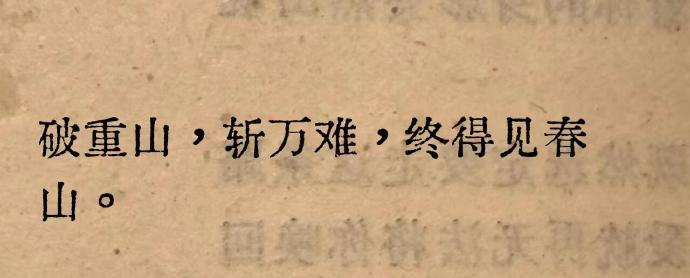 破重山，斩万难，终得见春
山。